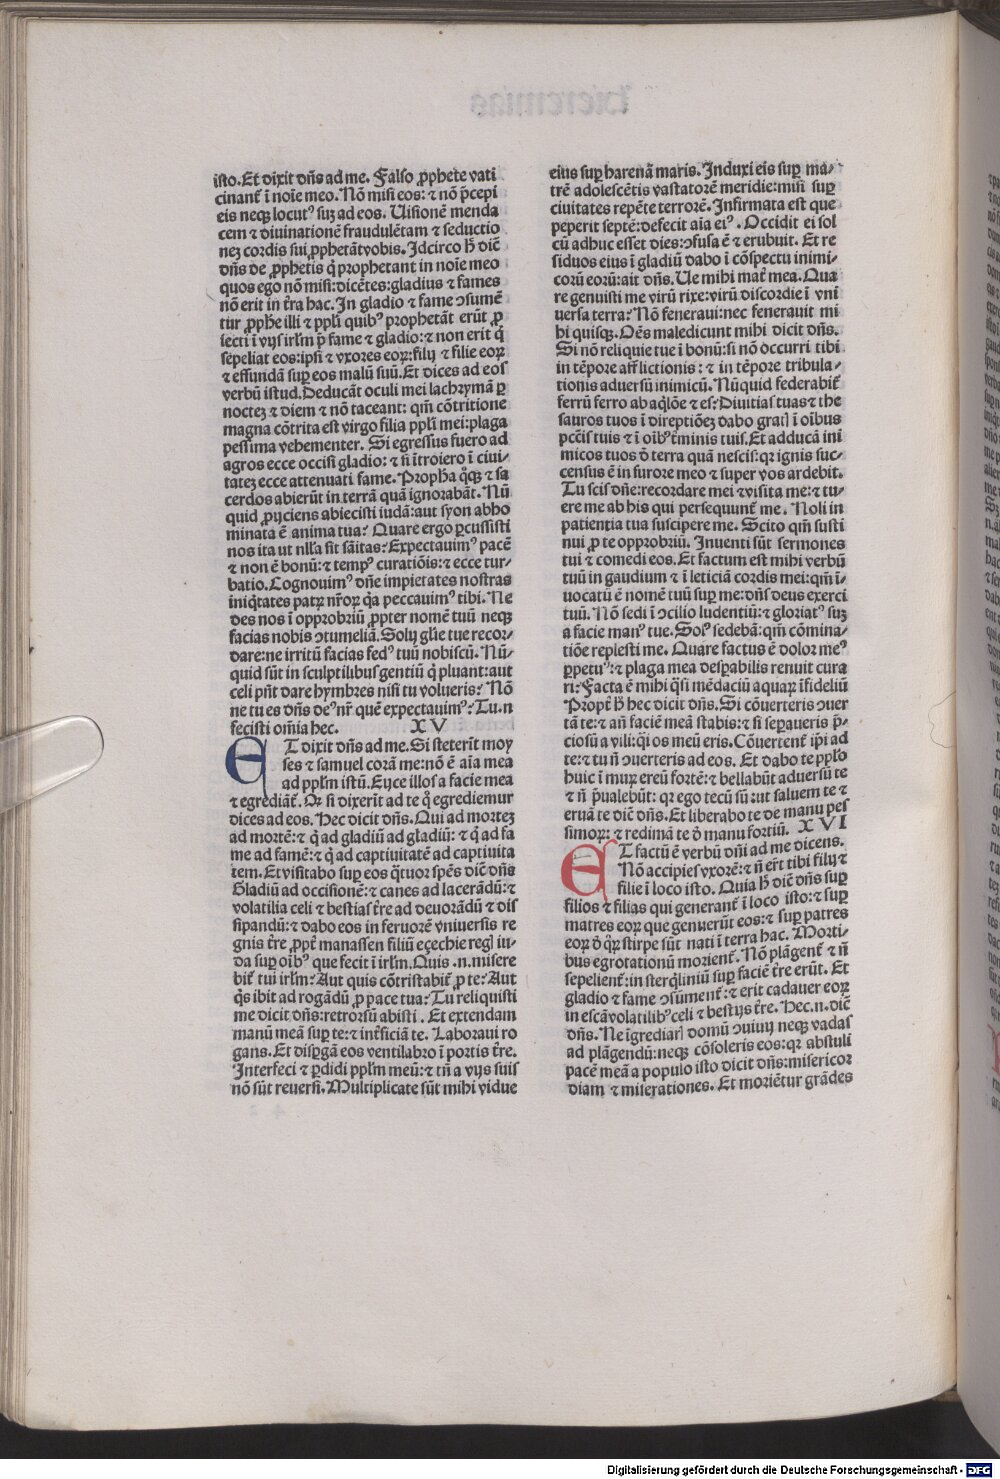 isto. Et dixit dñs ad me. Falso ꝓphete vati
cinant̃ ĩ noĩe meo. Nõ misi eos: ⁊ nõ p̃cepi
eis neqꝫ locutꝰ suꝫ ad eos. Uisionẽ menda
cem ⁊ diuinationẽ fraudulẽtam ⁊ seductio
neꝫ cordis sui ꝓphetãt vobis. Idcirco h̃ dic̃
dñs de ꝓphetis q̃ prophetant in noĩe meo
quos ego nõ misi: dicẽtes: gladius ⁊ fames
nõ erit in t̃ra hac. In gladio ⁊ fame ↄsumẽ
tur ꝓph̃e illi ⁊ pplĩ quibꝰ prophetãt erũt ꝓ
iecti ĩ vijs irlm̃ p̃ fame ⁊ gladio: ⁊ non erit q̃
sepeliat eos: ipsi ⁊ vxores eoꝝ: filij ⁊ filie eoꝝ
⁊ effundã suꝑ eos malũ suũ. Et dices ad eos
verbũ istud. Deducãt oculi mei lachrymã ꝑ
nocteꝫ ⁊ diem ⁊ nõ taceant: qm̃ cõtritione
magna cõtrita est virgo filia pplĩ mei: plaga
pessima vehementer. Si egressus fuero ad
agros ecce occisi gladio: ⁊ s̃i ĩtroiero ĩ ciui/
tateꝫ ecce attenuati fame. Proph̃a q̃qꝫ ⁊ sa
cerdos abierũt in terrã quã ignorabãt. Nũ
quid ꝓijciens abiecisti iudã: aut syon abho
minata ẽ anima tua? Quare ergo ꝑcussisti
nos ita ut nll̃a sit sãitas? Expectauimꝰ pacẽ
⁊ non ẽ bonũ: ⁊ tempꝰ curatiõis: ⁊ ecce tur/
batio. Cognouimꝰ dñe impietates nostras
iniq̃tates patꝝ nr̃oꝝ q̃a peccauimꝰ tibi. Ne
des nos ĩ opprobriũ ꝓpter nomẽ tuũ neqꝫ
facias nobis ↄtumeliã. Solij gl̃ie tue recor/
dare: ne irritũ facias fedꝰ tuũ nobiscũ. Nũ/
quid sũt in sculptilibus gentiũ q̃ pluant: aut
celi pñt dare hymbres nisi tu volueris? Nõ
ne tu es dñs deꝰ nr̃ quẽ expectauimꝰ? Tu .n
fecisti om̃ia hec. XV
ET dixit dñs ad me. Si steterĩt moy
ses ⁊ samuel corã me: nõ ẽ aĩa mea
ad pplm̃ istũ. Eijce illos a facie mea
⁊ egrediãt̃. Qr̃ si dixerĩt ad te q̃ egrediemur
dices ad eos. Hec dicit dñs. Qui ad morteꝫ
ad mortẽ: ⁊ q̃ ad gladiũ ad gladiũ: ⁊ q̃ ad fa
me ad famẽ: ⁊ q̃ ad captiuitatẽ ad captiuita
tem. Et visitabo suꝑ eos q̃tuor spẽs dic̃ dñs
Gladiũ ad occisionẽ: ⁊ canes ad lacerãdũ: ⁊
volatilia celi ⁊ bestias t̃re ad deuorãdũ ⁊ dis
sipandũ: ⁊ dabo eos in feruorẽ vniuersis re
gnis t̃re ꝓpt̃ manassen filiũ eçechie reg̃ iu/
da suꝑ oĩbꝰ que fecit ĩ irlm̃. Quis .n. misere
bit̃ tui irlm̃? Aut quis cõtristabit̃ ꝓ te? Aut
q̃s ibit ad rogãdũ ꝓ pace tua? Tu reliquisti
me dicit dñs: retrorsũ abisti. Et extendam
manũ meã suꝑ te: ⁊ int̃ficiã te. Laboraui ro
gans. Et disꝑgã eos ventilabro ĩ portis t̃re.
Interfeci ⁊ ꝑdidi pplm̃ meũ: ⁊ tñ a vijs suis
nõ sũt reuersi. Multiplicate sũt mihi vidue
eius suꝑ harenã maris. Induxi eis suꝑ ma/
trẽ adolescẽtis vastatorẽ meridie: misi suꝑ
ciuitates repẽte terrorẽ. Infirmata est que
peperit septẽ: defecit aĩa eiꝰ. Occidit ei sol
cũ adhuc esset dies: ↄfusa ẽ ⁊ erubuit. Et re
siduos eius ĩ gladiũ dabo ĩ cõspectu inimi/
corũ eorũ: ait dñs. Ue mihi mat̃ mea. Qua
re genuisti me virũ rixe: virũ discordie ĩ vni
uersa terra? Nõ feneraui: nec fenerauit mi
hi quisqꝫ. Oẽs maledicunt mihi dicit dñs.
Si nõ reliquie tue ĩ bonũ: si nõ occurri tibi
in tẽpore afflictionis: ⁊ in tẽpore tribula/
tionis aduersũ inimicũ. Nũquid federabit̃
ferrũ ferro ab aq̃lõe ⁊ es? Diuitias tuas ⁊ the
sauros tuos ĩ direptiõeꝫ dabo grat̃ ĩ oĩbus
pcc̃is tuis ⁊ ĩ oĩbꝰ t̃minis tuis. Et adducã ini
micos tuos õ terra quã nescis: qꝛ ignis suc/
census ẽ in furore meo ⁊ super vos ardebit.
Tu scis dñe: recordare mei ⁊ visita me: ⁊ tu/
ere me ab his qui persequunt̃ me. Noli in
patientia tua suscipere me. Scito qm̃ susti
nui ꝓ te opprobriũ. Inuenti sũt sermones
tui ⁊ comedi eos. Et factum est mihi verbũ
tuũ in gaudium ⁊ ĩ leticiã cordis mei: qm̃ ĩ/
uocatũ ẽ nomẽ tuũ suꝑ me: dñs deus exerci
tuũ. Nõ sedi ĩ ↄcilio ludentiũ: ⁊ gloriatꝰ suꝫ
a facie manꝰ tue. Solꝰ sedebã: qm̃ cõmina/
tiõe replesti me. Quare factus ẽ dolor meꝰ
ꝑpetuꝰ: ⁊ plaga mea desꝑabilis renuit cura
ri? Facta ẽ mihi q̃si mẽdaciũ aquaꝝ ĩfideliũ
Propt̃ h̃ hec dicit dñs. Si cõuerteris ↄuer
tã te: ⁊ añ faciẽ meã stabis: ⁊ si seꝑaueris p̃/
ciosũ a vili: q̃si os meũ eris. Cõuertent̃ ip̃i ad
te: ⁊ tu ñ ↄuerteris ad eos. Et dabo te pplõ
huic ĩ muꝝ ereũ fortẽ: ⁊ bellabũt aduersũ te
⁊ ñ p̃ualebũt: qꝛ ego tecũ sũ: ut saluem te ⁊
eruã te dic̃ dñs. Et liberabo te de manu pes
simoꝝ: ⁊ redimã te õ manu fortiũ. XVI
ET factũ ẽ verbũ dñi ad me dicens.
Nõ accipies vxorẽ: ⁊ ñ er̃t tibi filij ⁊
filie ĩ loco isto. Quia h̃ dic̃ dñs suꝑ
filios ⁊ filias qui generant̃ ĩ loco isto: ⁊ suꝑ
matres eoꝝ que genuerũt eos: ⁊ suꝑ patres
eoꝝ õ q̃ꝝ stirpe sũt nati ĩ terra hac. Morti/
bus egrotationũ morient̃. Nõ plãgent̃ ⁊ ñ
sepelient̃: in sterq̃liniũ suꝑ faciẽ t̃re erũt. Et
gladio ⁊ fame ↄsument̃: ⁊ erit cadauer eoꝝ
in escã volatilibꝰ celi ⁊ bestijs t̃re. Hec .n. dic̃
dñs. Ne ĩgrediar̃ domũ ↄuiuij neqꝫ vadas
ad plãgendũ: neqꝫ cõsoleris eos: qꝛ abstuli
pacẽ meã a populo isto dicit dñs: misericor
diam ⁊ miserationes. Et moriẽtur grãdes
Digitalisierung gefördert durch die Deutsche Forschungsgemeinschaft - DFG